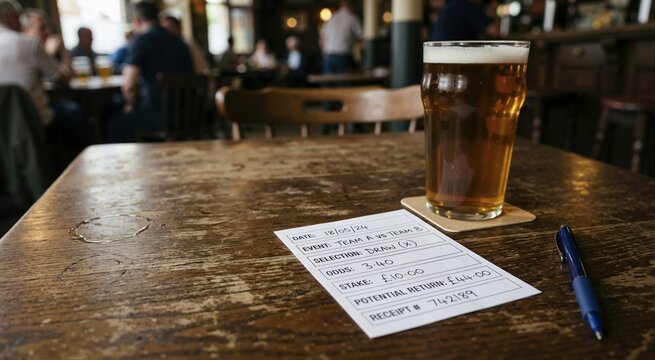 DATE: 18/05/24
EVENT: TEAM A vs TEAM B
SELECTION: DRAW (X)
ODDS: 3.40
STAKE: £10.00
POTENTIAL RETURN: £44.00
RECEIPT # 742189